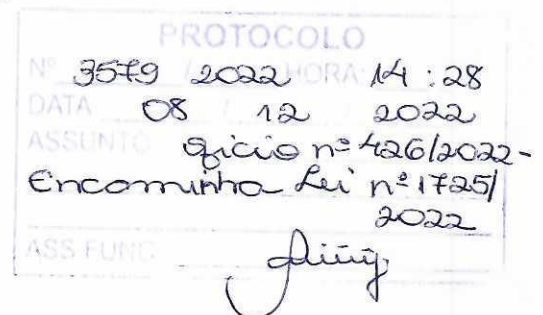 PROTOCOLO
Nº 3579 / 2022 HORA: 14:28
DATA 08 / 12 / 2022
ASSUNTO Ofício nº 426/2022-
Encaminha Lei nº 1725/
2022
ASS FUNC